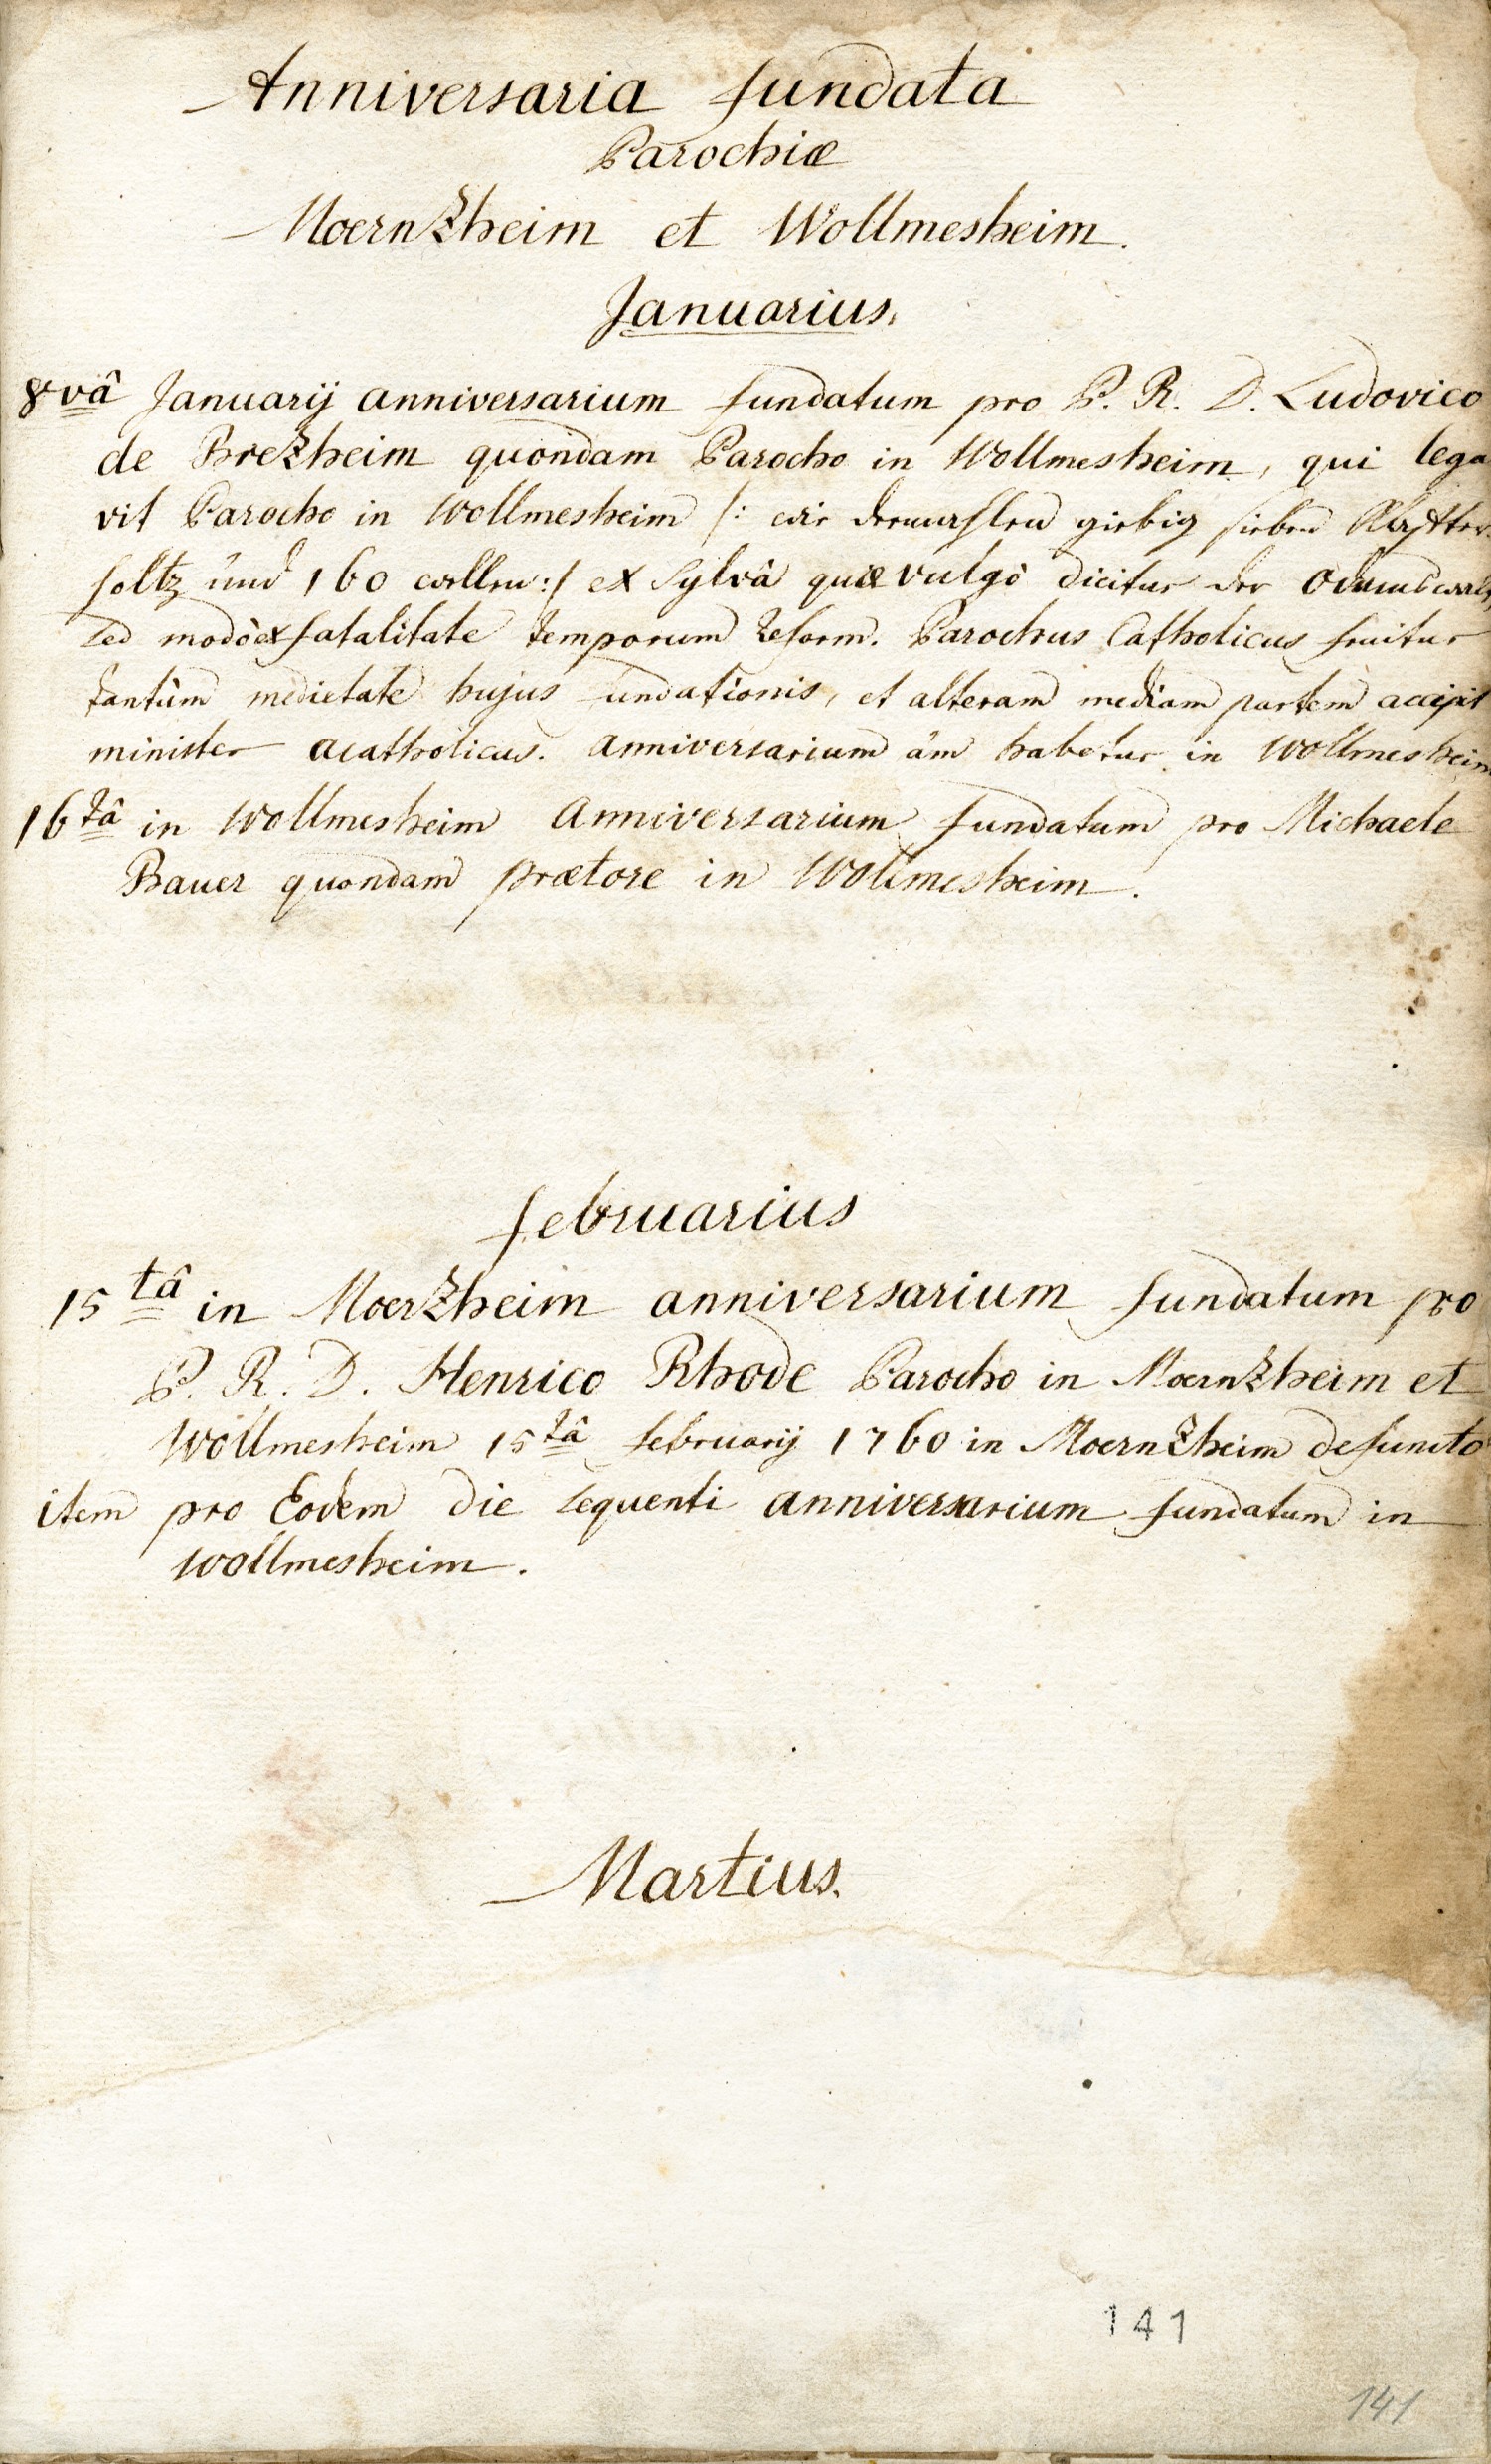 Anniversaria fundata
Parochiæ
Moernzheim et Wollmesheim.
Januarius.
8vâ Januarij anniversarium fundatum pro P. R. D. Ludovico
de Brezheim quondam Parocho in Wollmesheim, qui lega
vit Parocho in Wollmesheim /: wie giebig sieben Klaffter
holtz und 160 wellen :/ ex sylvâ quæ vulgò dicitur der
sed modò ex fatalitate temporum reform. Parochus Catholicus fruitur
tantùm medietate hujus fundationis, et alteram mediam partem accipit
minister acatholicus. anniversarium am habetur in Wollmesheim
16tâ in Wollmesheim Anniversarium fundatum pro Michaele
Bauer quondam prætore in Wollmesheim.
februarius
15tâ in Moerzheim anniversarium fundatum pro
P. R. D. Henrico Rhode Parocho in Moernzheim et
Wollmesheim 15tâ februarij 1760 in Moernzheim defuncto
item pro Eodem die sequenti anniversarium fundatum in
Wollmesheim.
Martius.
141
141